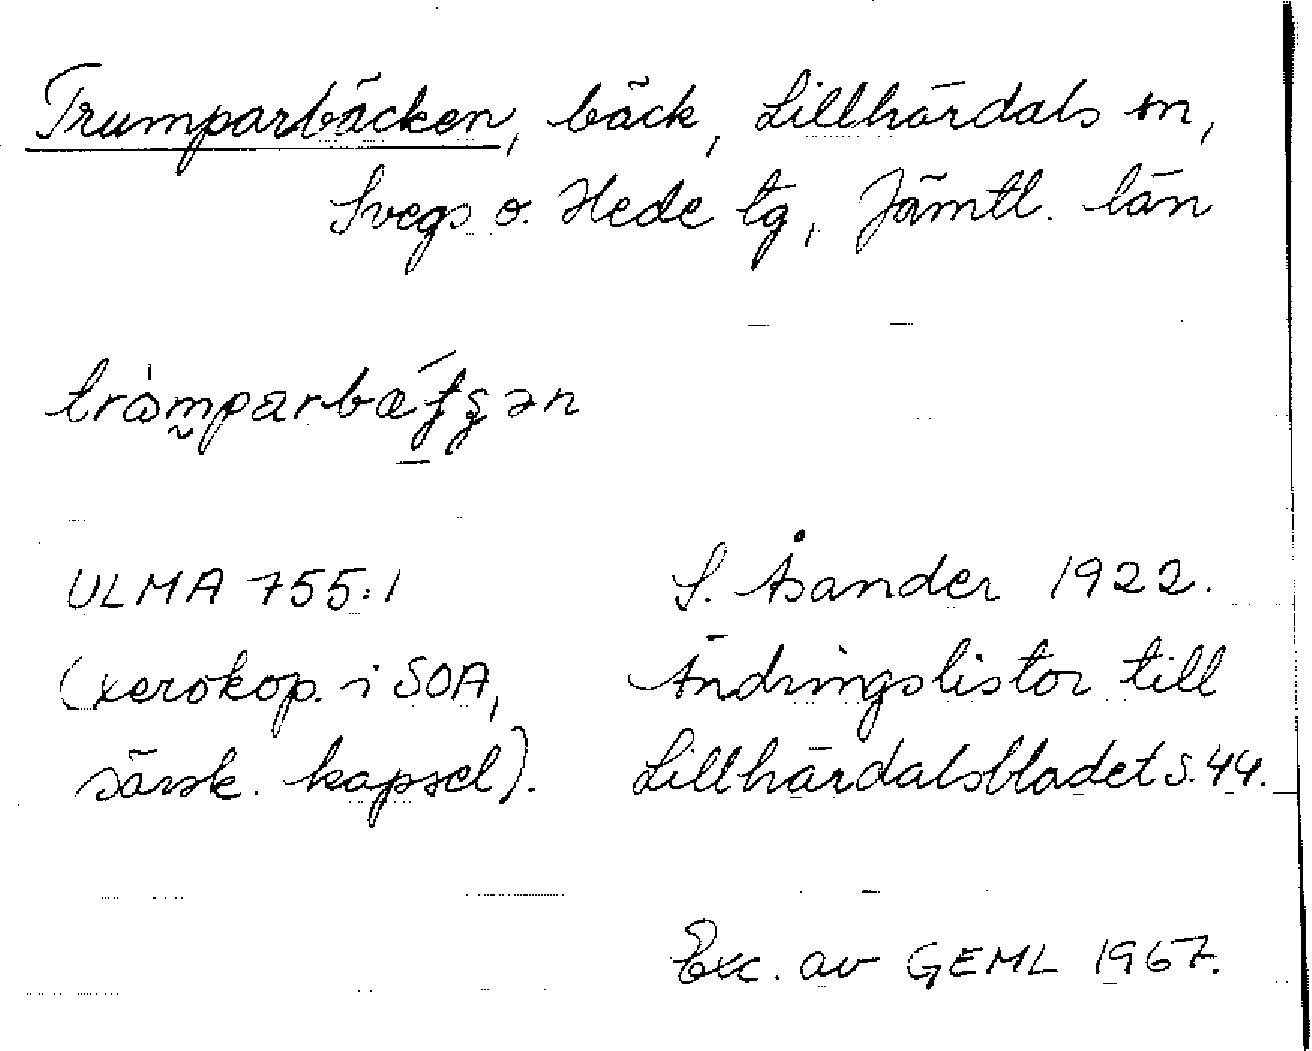 Trumparbäcken, bäck, Lillhärdals sn,
Svegs o. Hede tg, Jämtl. län
ULMA 755:1
S. Åsander 1922.
(xerokop. i SOA,
Ändringslistor till
särsk. kapsel).
Lillhärdalsbladet s. 44.
Exc. av GEML 1967.